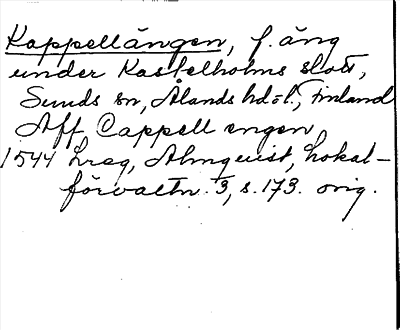 Kappellängen, f. äng
under Kastelholms slott,
Sunds sn, Ålands hd o l., Finland
Aff Cappell engen
1544 hreg, Almquist, Lokal-
förvaltn. 3, s. 173. orig.